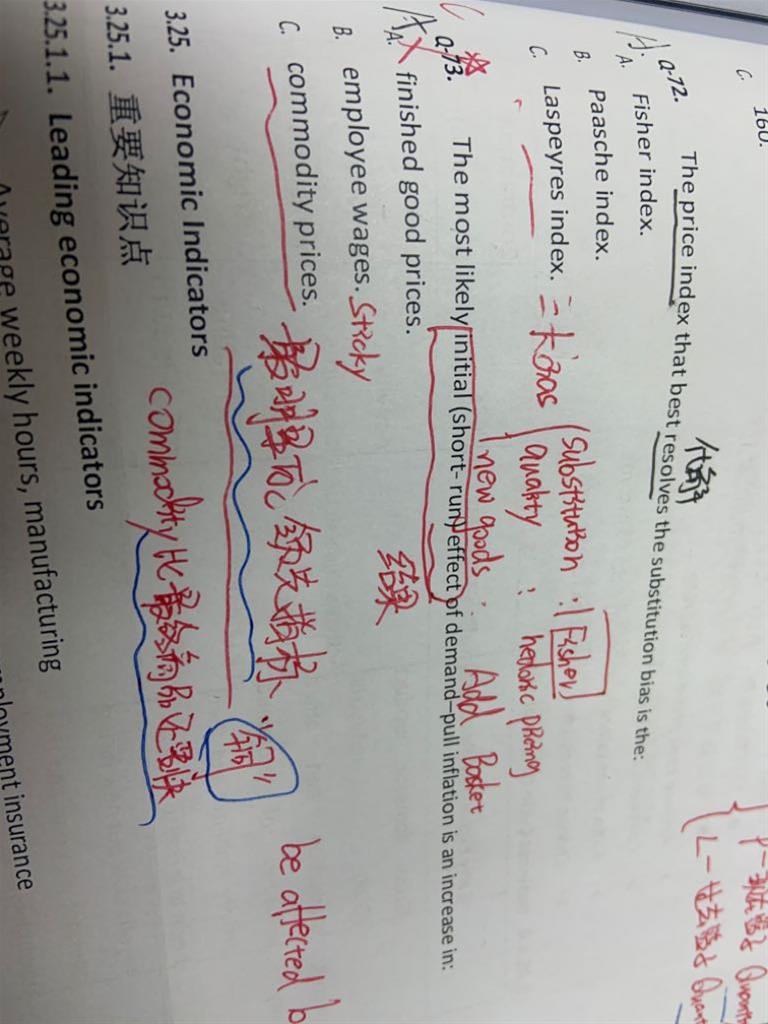 C. 160.
P-现在 Quantity
L-过去 Quant
代表
Q-72. The price index that best resolves the substitution bias is the:
A. Fisher index.
B. Paasche index.
C. Laspeyres index. 三大bias
substitution : Fisher
quality : hedonic pricing
new goods : Add Basket
Q-73. The most likely initial (short-run) effect of demand–pull inflation is an increase in:
结果
A. finished good prices.
B. employee wages. Sticky
C. commodity prices. 领先指标 "铜" be affected b
commodity 比最终商品还要快
3.25. Economic Indicators
3.25.1. 重要知识点
3.25.1.1. Leading economic indicators
Average weekly hours, manufacturing
employment insurance